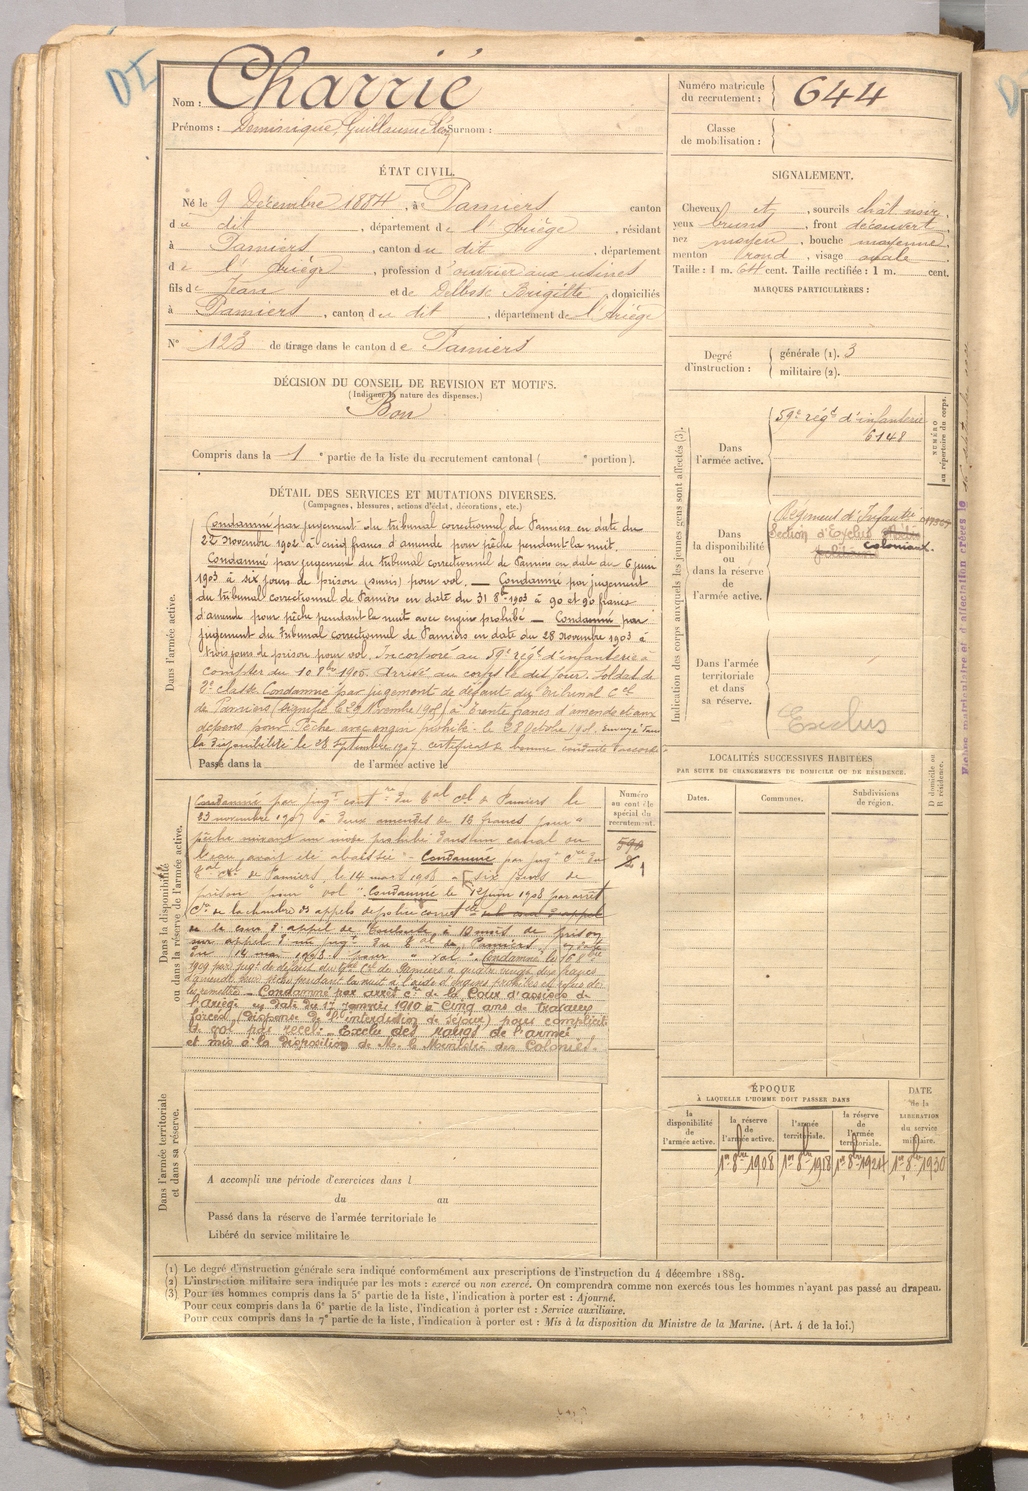 DI
Nom : Charrié
Prénoms : Dominique Guillaume Surnom :
Numéro matricule
du recrutement : 644
Classe
de mobilisation :
ÉTAT CIVIL.
Né le 9 Décembre 1884, à Pamiers canton
du dit, département de l'Ariège, résidant
à Pamiers, canton du dit, département
de l'Ariège, profession d'ouvrier aux usines
fils de Jean et de Delbosc Brigitte, domiciliés
à Pamiers, canton du dit, département de l'Ariège
N° 123 de tirage dans le canton de Pamiers
SIGNALEMENT.
Cheveux et, sourcils chât noir,
yeux bruns, front découvert,
nez moyen, bouche moyenne,
menton rond, visage ovale
Taille : 1 m. 64 cent. Taille rectifiée : 1 m. cent.
MARQUES PARTICULIÈRES :
Degré
d'instruction :
générale (1). 3
militaire (2).
DÉCISION DU CONSEIL DE REVISION ET MOTIFS.
(Indiquer la nature des dispenses.)
Bon
Compris dans la 1e partie de la liste du recrutement cantonal ( e portion).
DÉTAIL DES SERVICES ET MUTATIONS DIVERSES.
(Campagnes, blessures, actions d'éclat, décorations, etc.)
Dans l'armée active.
Condamné par jugement du tribunal correctionnel de Pamiers en date du
22 novembre 1902 à cinq francs d'amende pour pêche pendant la nuit.
Condamné par jugement du tribunal correctionnel de Pamiers en date du 6 juin
1903 à six jours de prison (sursis) pour vol. — Condamné par jugement
du tribunal correctionnel de Pamiers en date du 31 8bre 1903 à 90 et 90 francs
d'amende pour pêche pendant la nuit avec engin prohibé — Condamné par
jugement du Tribunal correctionnel de Pamiers en date du 28 novembre 1903 à
trois jours de prison pour vol. Incorporé au 59e régt d'infanterie à
compter du 10 8bre 1905. Arrivé au corps le dit jour. Soldat de
2e classe. Condamné par jugement de défaut du Tribunal Cel
de Pamiers (signifié le 29 Novembre 1905) à trente francs d'amende et aux
dépens pour Pêche avec engin prohibé le 28 Octobre Envoyé dans
la disponibilité le 28 septembre 1907 certificat de bonne conduite accordé
Passé dans la de l'armée active le
Dans la disponibilité
ou dans la réserve de l'armée active.
Condamné par jugt contre du tal cel de Pamiers le
23 novembre 1907 à deux amendes de 16 francs pour "
pêche suivant un mode prohibé dans un canal ou
l'eau avait été abaissée" - Condamné par jugt Cre du
tal Cel de Pamiers, le 14 mars 1908 à six jours de
prison pour "vol". Condamné le 1er juin 1908 par arrêt
Cre de la chambre des appels de police correct elle de la cour d'appel
de la cour d'appel de Toulouse à 10 mois de prison
sur appel d'un jugt du tal de Pamiers en date
du 14 mai 1908 pour "vol". Condamné le 16 8bre
1909 par jugt de défaut du tal Cel de Pamiers à francs
d'amende pour pêche pendant la nuit à l'aide d'engins prohibés et refus de
les remettre - Condamné par arrêt Cre de la Cour d'assises de
l'Ariège en date du 17 janvier 1910 à Cinq ans de travaux
forcés (Dispensé de l'interdiction de séjour) pour complicité
de vol par recel - Exclu des rangs de l'armée
et mis à la disposition de M. le Ministre des Colonies.
Numéro
au contrôle
spécial du
recrutement.
590
2
1
Dans l'armée territoriale
et dans sa réserve.
A accompli une période d'exercices dans l
du au
Passé dans la réserve de l'armée territoriale le
Libéré du service militaire le
Indication des corps auxquels les jeunes gens sont affectés (3).
NUMÉRO
au répertoire du corps.
Dans
l'armée active.
59e régt d'infanterie
6148
Dans
la disponibilité
ou
dans la réserve
de
l'armée active.
Régiment d'Infanterie
Section d'Exclus
coloniaux.
Dans l'armée
territoriale
et dans
sa réserve.
Exclus
Fiches matriculaire et d'affectation créées le
LOCALITÉS SUCCESSIVES HABITÉES
PAR SUITE DE CHANGEMENTS DE DOMICILE OU DE RÉSIDENCE.
Dates. Communes. Subdivisions
de région.
D domicile ou
R résidence.
ÉPOQUE
À LAQUELLE L'HOMME DOIT PASSER DANS
la
disponibilité
de
l'armée active.
la réserve
de
l'armée active.
l'armée
territoriale.
la réserve
de
l'armée
territoriale.
DATE
de la
LIBÉRATION
du service
militaire.
1er 8bre 1908 1er 8bre 1918 1er 8bre 1924 1er 8bre 1930
(1) Le degré d'instruction générale sera indiqué conformément aux prescriptions de l'instruction du 4 décembre 1889.
(2) L'instruction militaire sera indiquée par les mots : exercé ou non exercé. On comprendra comme non exercés tous les hommes n'ayant pas passé au drapeau.
(3) Pour les hommes compris dans la 5e partie de la liste, l'indication à porter est : Ajourné.
Pour ceux compris dans la 6e partie de la liste, l'indication à porter est : Service auxiliaire.
Pour ceux compris dans la 7e partie de la liste, l'indication à porter est : Mis à la disposition du Ministre de la Marine. (Art. 4 de la loi.)